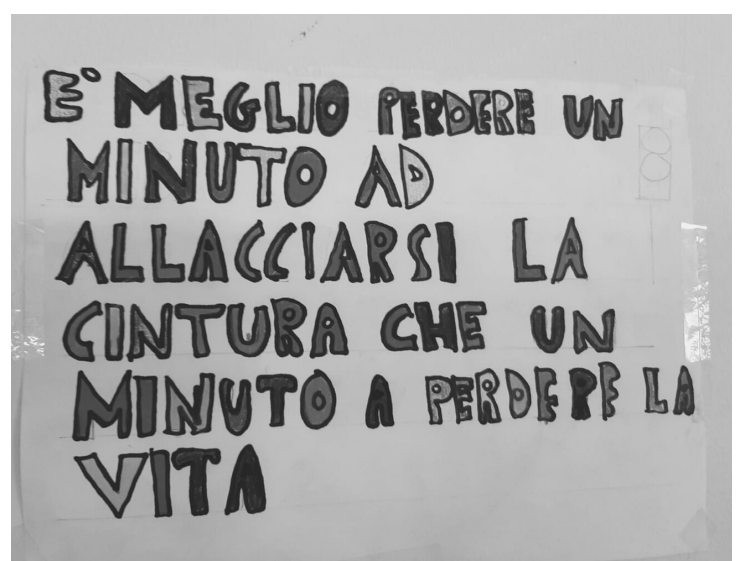 E° MEGLIO PERDERE UN
MINUTO AD
ALLACCIARSI LA
CINTURA CHE UN
MINUTO A PERDERE LA
VITA